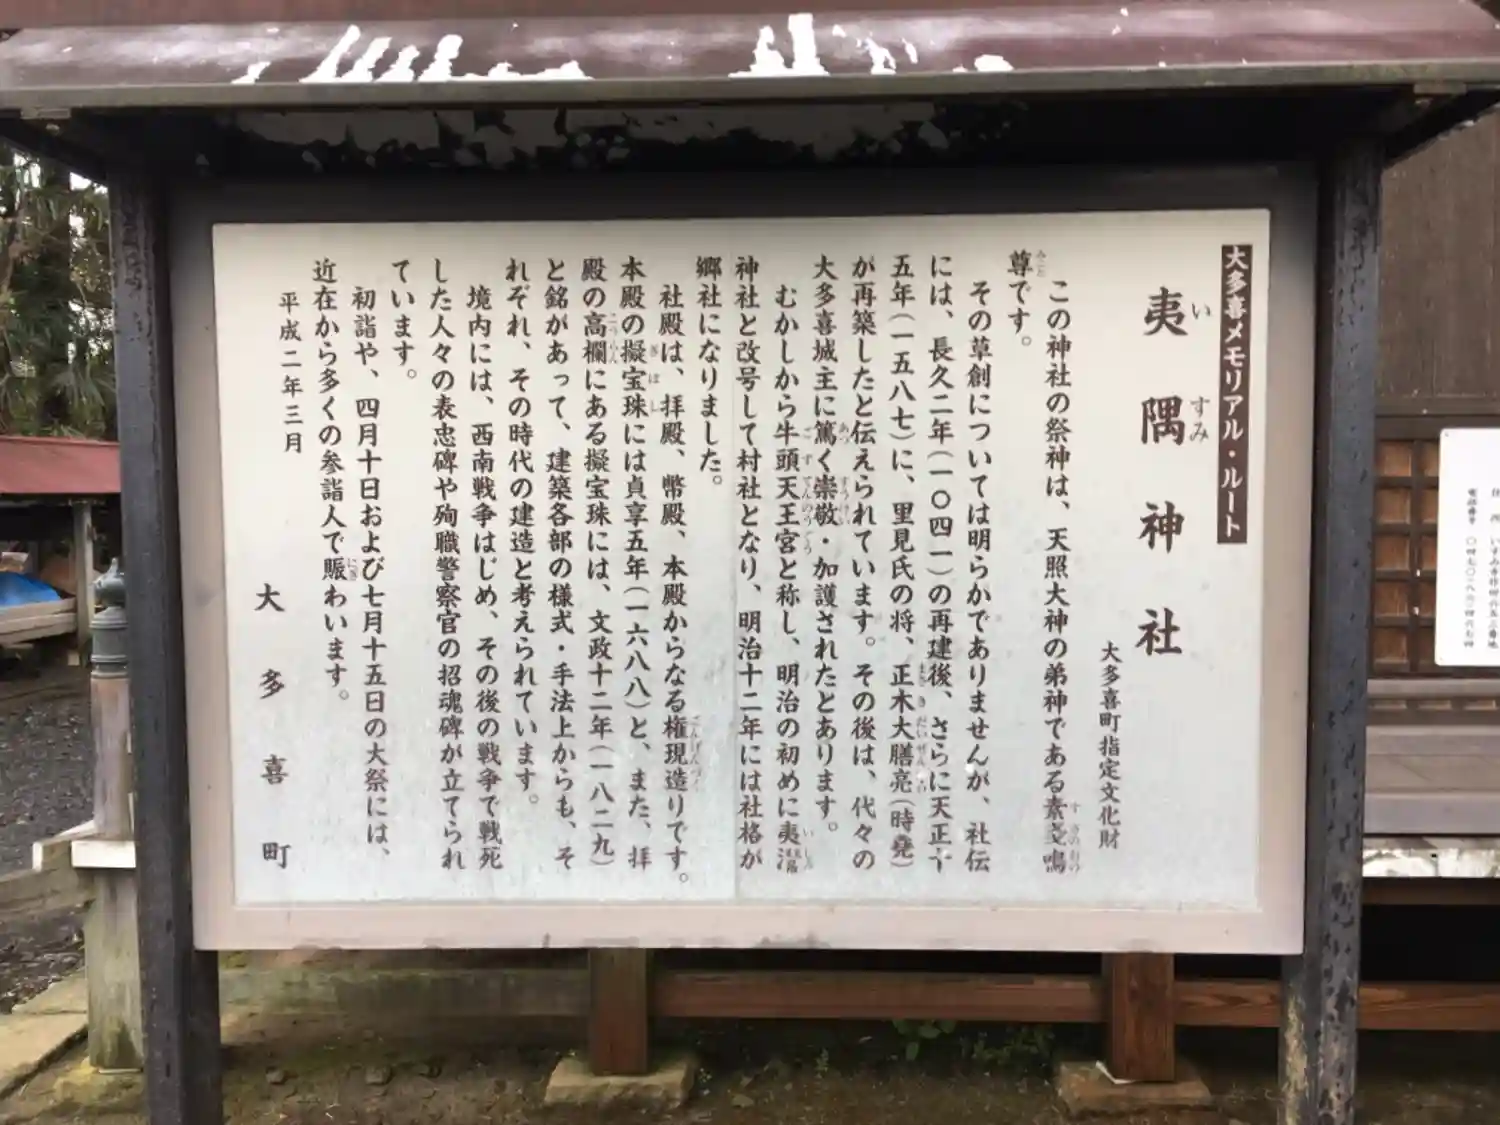 大多喜メモリアル・ルート
夷隅神社
大多喜町指定文化財
この神社の祭神は、天照大神の弟神である素戔嗚
尊です。
その草創については明らかでありませんが、社伝
には、長久二年(一〇四一)の再建後、さらに天正十
五年(一五八七)に、里見氏の将、正木大膳亮(時堯)
が再築したと伝えられています。その後は、代々の
大多喜城主に篤く崇敬・加護されたとあります。
むかしから牛頭天王宮と称し、明治の初めに夷灊
神社と改号して村社となり、明治十二年には社格が
郷社になりました。
社殿は、拝殿、幣殿、本殿からなる権現造りです。
本殿の擬宝珠には貞享五年(一六八八)と、また、拝
殿の高欄にある擬宝珠には、文政十二年(一八二九)
と銘があって、建築各部の様式・手法上からも、そ
れぞれ、その時代の建造と考えられています。
境内には、西南戦争はじめ、その後の戦争で戦死
した人々の表忠碑や殉職警察官の招魂碑が立てられ
ています。
初詣や、四月十日および七月十五日の大祭には、
近在から多くの参詣人で賑わいます。
平成二年三月
大多喜町